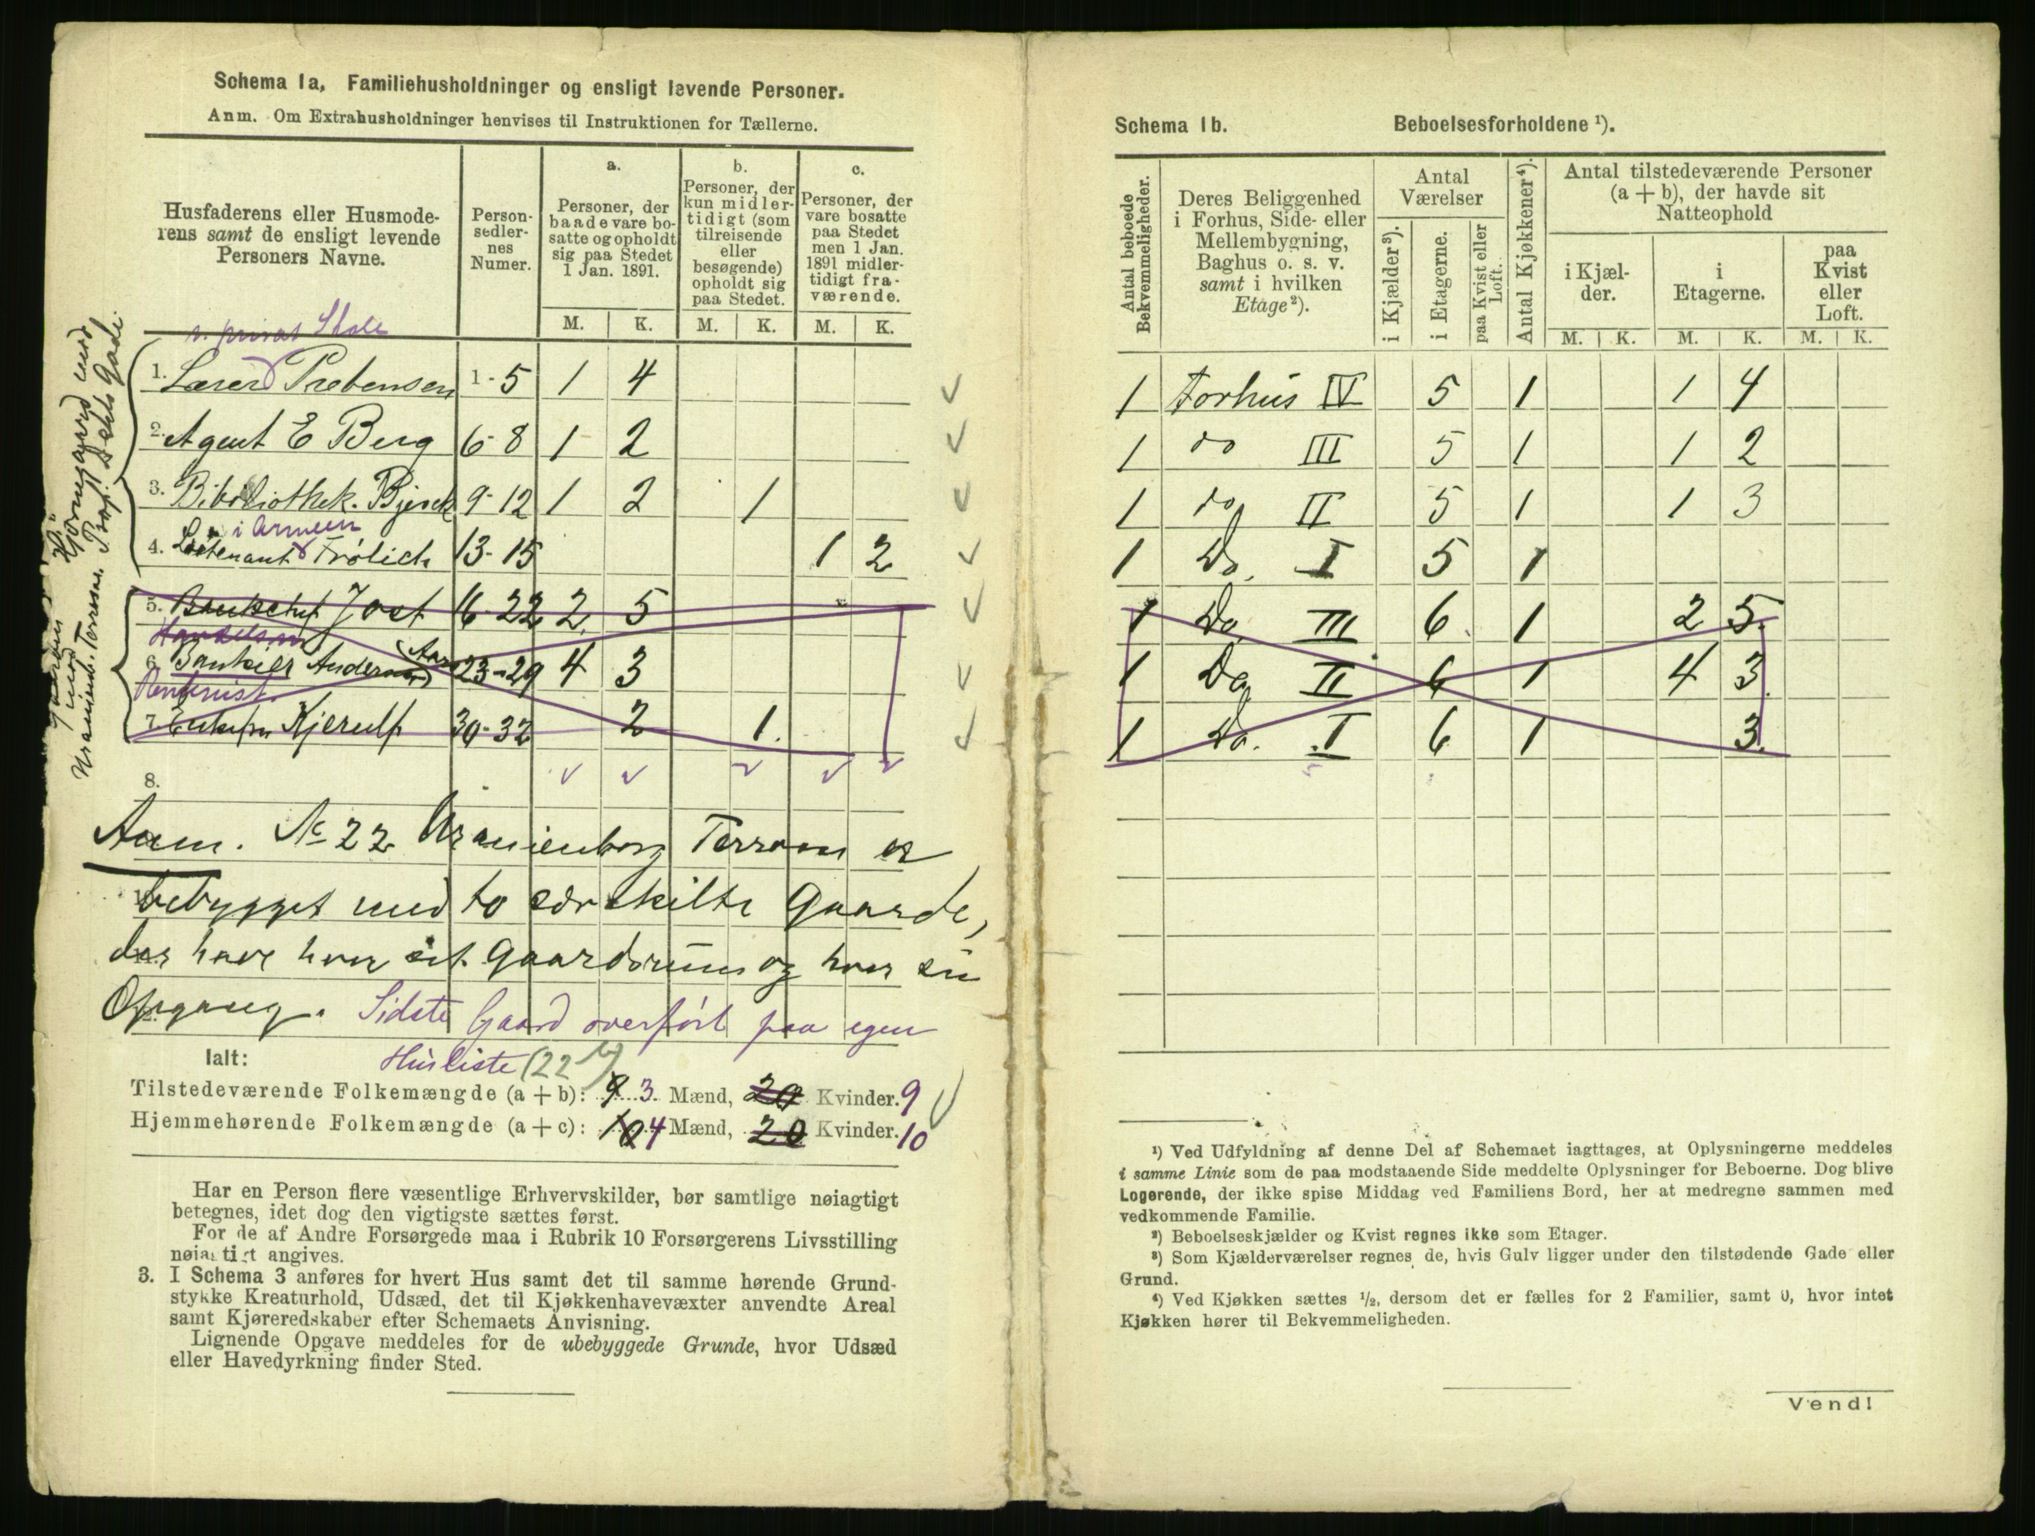 Schema 1a, Familiehusholdninger og ensligt levende Personer.
Anm. Om Extrahusholdninger henvises til Instruktionen for Tællerne.
Husfaderens eller Husmode-
rens samt de ensligt levende
Personers Navne.
Person-
sedler-
nes
Numer.
a.
Personer, der
baade vare bo-
satte og opholdt
sig paa Stedet
1 Jan. 1891.
b.
Personer, der
kun midler-
tidigt (som
tilreisende
eller
besøgende)
opholdt sig
paa Stedet.
c.
Personer, der
vare bosatte
paa Stedet
men 1 Jan.
1891 midler-
tidigt fra-
værende.
M. K. M. K. M. K.
v. privat Skole
1. Lærer Prebensen 1-5 1 4
2. Agent E Berg 6-8 1 2
3. Bibliothek. 9-12 1 2 1
i Armeen
4. Løitenant Frølich 13-15 1 2
5. Bankchef Jost 16-22 2 5
6. Bankier 23-29 4 3
Rentenist
7. Kjerulf 30-32 2 1.
8.
Gaarden mod
Uranienb. Terrasse.
Hjørnegaard mod
Gade
Anm. No 22 Uranienborg Terrasse er
bebygget med to særskilte Gaarde,
der have hver sit Gaardsrum og hver sin
Opgang. Sidste Gaard overført paa egen
Husliste (22 b)
Ialt:
Tilstedeværende Folkemængde (a + b): 9 3 Mænd, 20 Kvinder. 9
Hjemmehørende Folkemængde (a + c): 10 4 Mænd, 20 Kvinder. 10
Har en Person flere væsentlige Erhvervskilder, bør samtlige nøiagtigt
betegnes, idet dog den vigtigste sættes først.
For de af Andre Forsørgede maa i Rubrik 10 Forsørgerens Livsstilling
nøiagtigt angives.
3. I Schema 3 anføres for hvert Hus samt det til samme hørende Grund-
stykke Kreaturhold, Udsæd, det til Kjøkkenhavevæxter anvendte Areal
samt Kjøreredskaber efter Schemaets Anvisning.
Lignende Opgave meddeles for de ubebyggede Grunde, hvor Udsæd
eller Havedyrkning finder Sted.
Schema 1b. Beboelsesforholdene ¹).
Antal beboede
Bekvemmeligheder.
Deres Beliggenhed
i Forhus, Side- eller
Mellembygning,
Baghus o. s. v.
samt i hvilken
Etage²).
Antal
Værelser
i Kjælder³).
i Etagerne.
paa Kvist eller
Loft.
Antal Kjøkkener⁴).
Antal tilstedeværende Personer
(a + b), der havde sit
Natteophold
i Kjæl-
der.
i
Etagerne.
paa
Kvist
eller
Loft.
M. K. M. K. M. K.
1 Forhus IV 5 1 1 4
1 do III 5 1 1 2
1 do II 5 1 1 3
1 Do. I 5 1
1 Do. III 6 1 2 5.
1 Do. II 6 1 4 3.
1 Do. I 6 1 3.
¹) Ved Udfyldning af denne Del af Schemaet iagttages, at Oplysningerne meddeles
i samme Linie som de paa modstaaende Side meddelte Oplysninger for Beboerne. Dog blive
Logerende, der ikke spise Middag ved Familiens Bord, her at medregne sammen med
vedkommende Familie.
²) Beboelseskjælder og Kvist regnes ikke som Etager.
³) Som Kjælderværelser regnes de, hvis Gulv ligger under den tilstødende Gade eller
Grund.
⁴) Ved Kjøkken sættes ½, dersom det er fælles for 2 Familier, samt 0, hvor intet
Kjøkken hører til Bekvemmeligheden.
Vend!